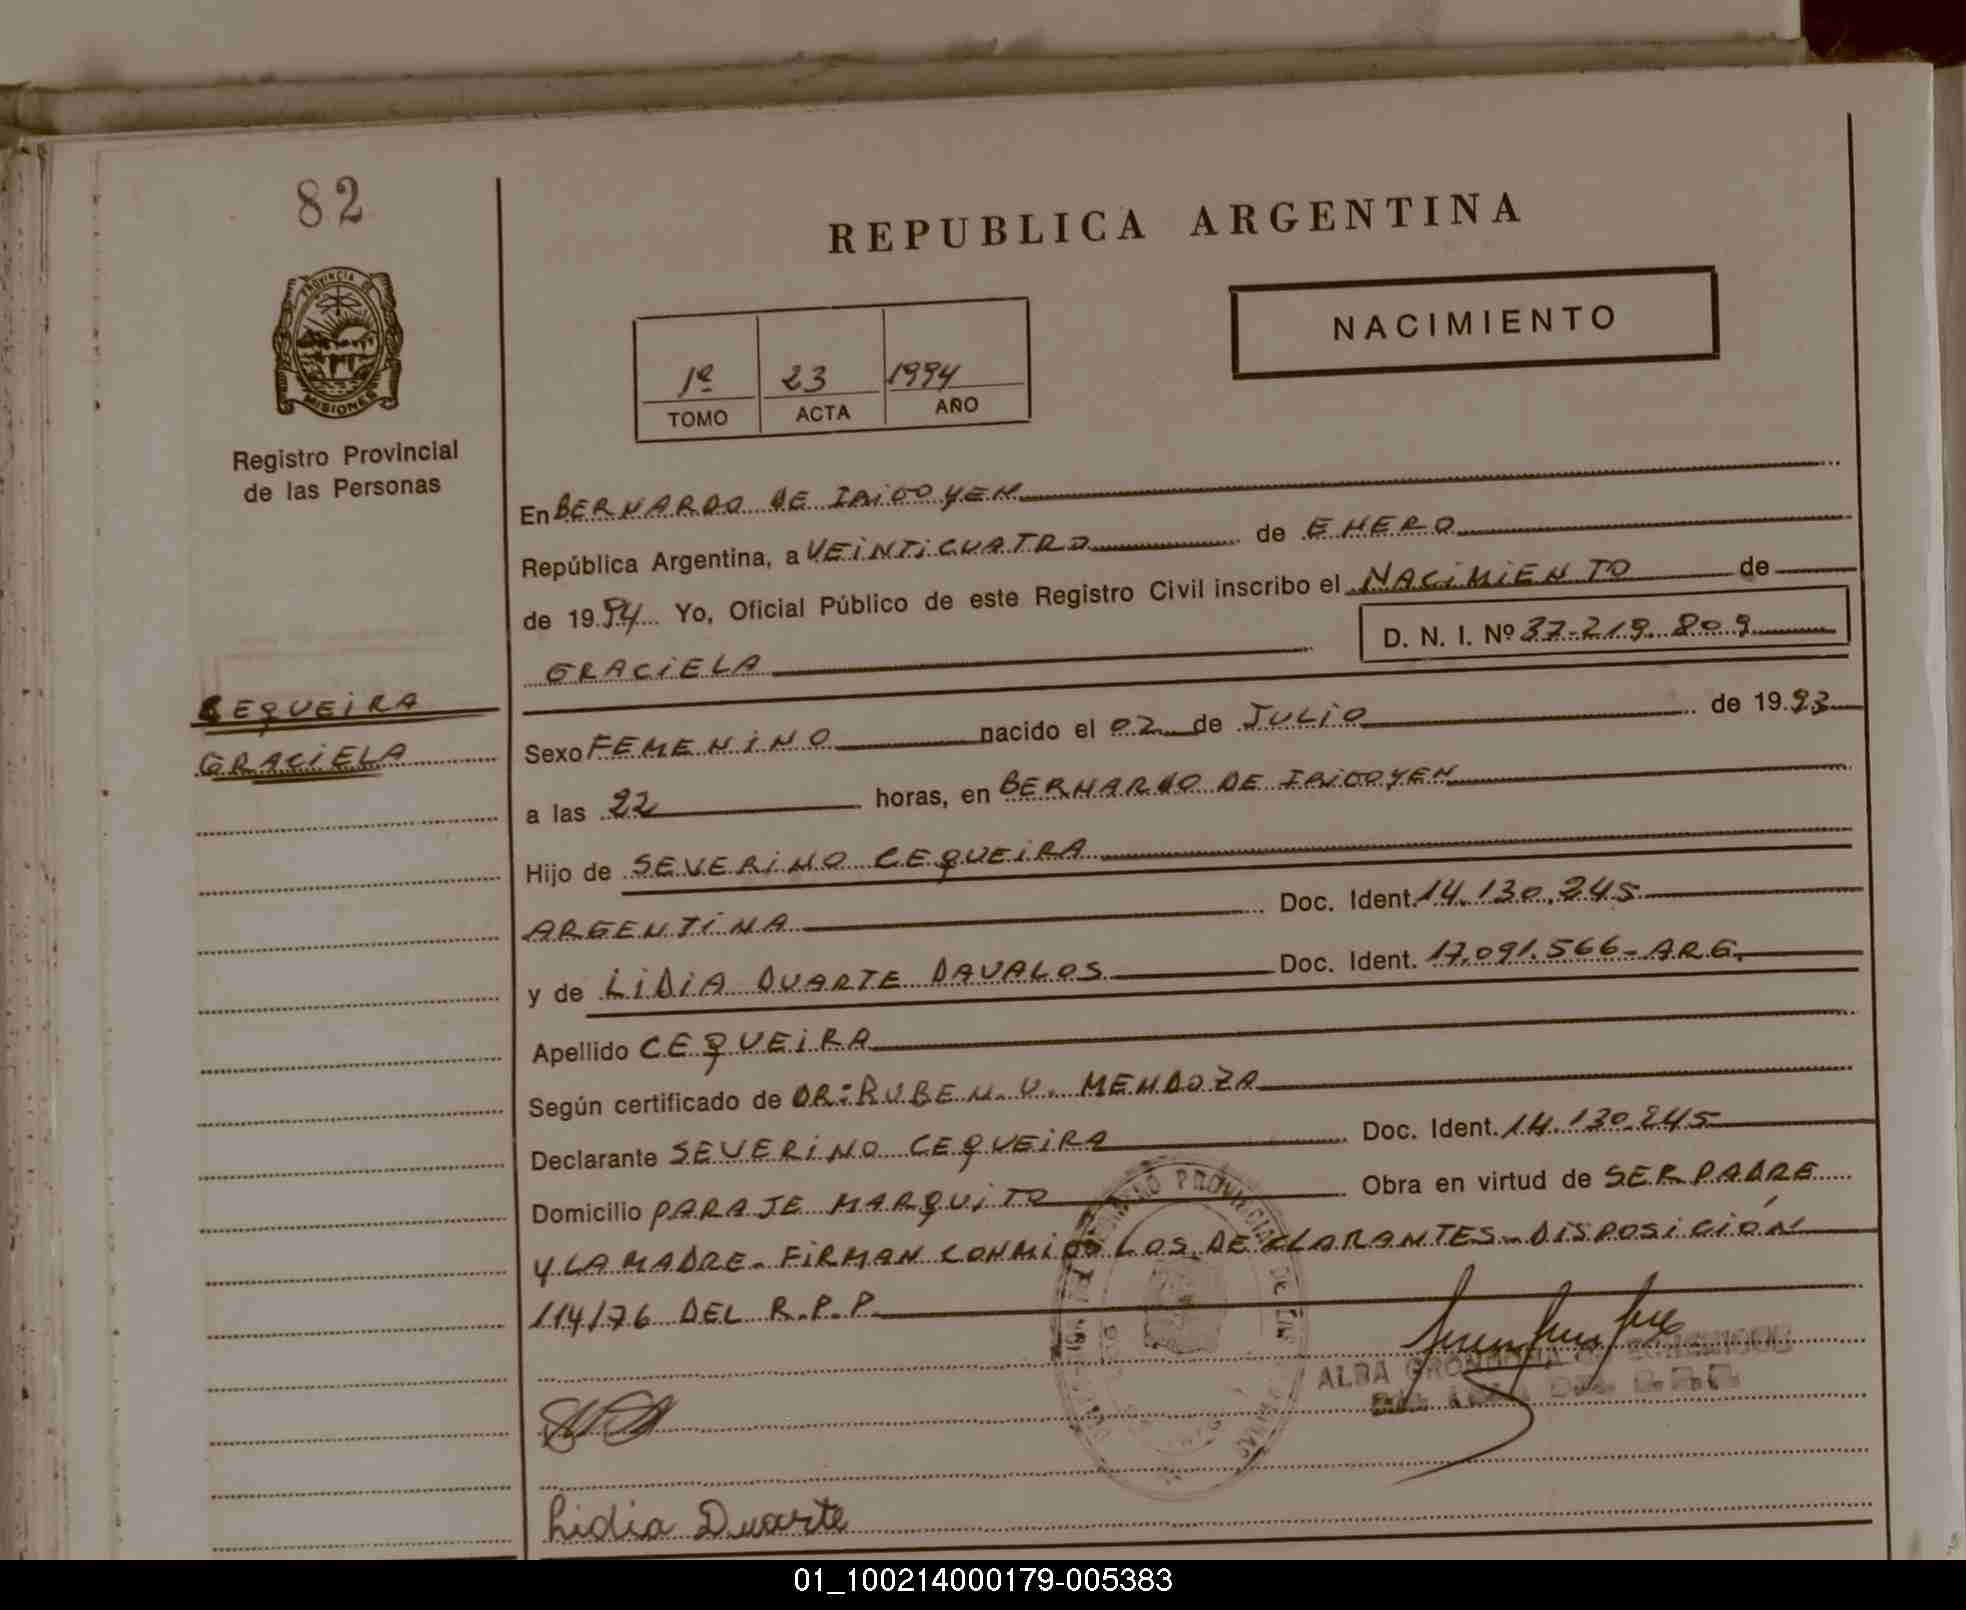 82
REPUBLICA ARGENTINA
PROVINCIA DE
MISIONES
NACIMIENTO
1º 23 1994
TOMO ACTA AÑO
Registro Provincial
de las Personas
En BERNARDO DE IRIGOYEN
República Argentina, a VEINTICUATRO de ENERO
de 1994 Yo, Oficial Público de este Registro Civil inscribo el NACIMIENTO de
D. N. I. Nº 37-219.809
GRACIELA
CEQUEIRA
GRACIELA
Sexo FEMENINO nacido el 02 de JULIO de 1993
a las 22 horas, en BERNARDO DE IRIGOYEN
Hijo de SEVERINO CEQUEIRA
ARGENTINA Doc. Ident. 14.130.245
y de LIDIA DUARTE DAVALOS Doc. Ident. 17.091.566-ARG.
Apellido CEQUEIRA
Según certificado de DR: RUBEN. U. MENDOZA
Declarante SEVERINO CEQUEIRA Doc. Ident. 14.130.245
Domicilio PARAJE MARQUITO Obra en virtud de SER PADRE
Y LA MADRE. FIRMAN CONMIGO LOS DECLARANTES. DISPOSICIÓN
114/76 DEL R.P.P.
ALBA GRONDONA
Lidia Duarte
01_100214000179-005383